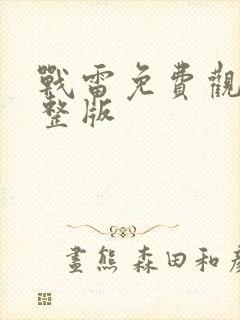 戰雷免費觀
整版
畫熊 森田和彥